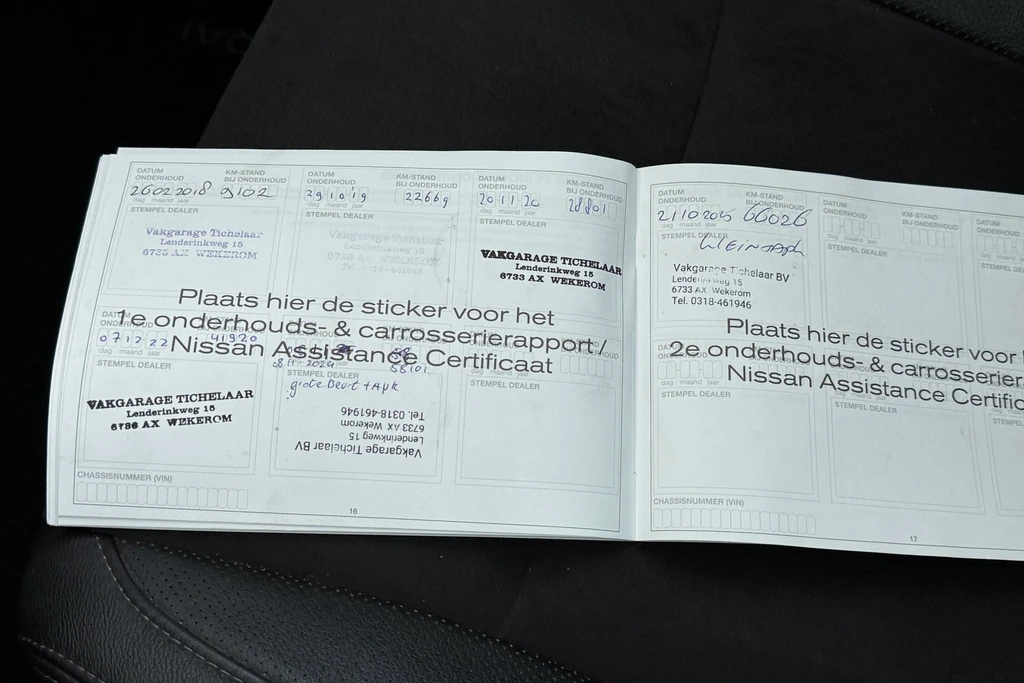 DATUM ONDERHOUD
KM-STAND BIJ ONDERHOUD
26022018 9102
dag maand jaar
STEMPEL DEALER
Vakgarage Tichelaar
Lenderinkweg 15
6733 AX WEKEROM
DATUM ONDERHOUD
KM-STAND BIJ ONDERHOUD
291019 22669
dag maand jaar
STEMPEL DEALER
Vakgarage Tichelaar
Lenderinkweg 15
DATUM ONDERHOUD
KM-STAND BIJ ONDERHOUD
201120 28801
dag maand jaar
STEMPEL DEALER
VAKGARAGE TICHELAAR
Lenderinkweg 15
6733 AX WEKEROM
Plaats hier de sticker voor het
1e onderhouds- & carrosserierapport /
Nissan Assistance Certificaat
DATUM ONDERHOUD
071222 41920
dag maand jaar
STEMPEL DEALER
VAKGARAGE TICHELAAR
Lenderinkweg 15
6733 AX WEKEROM
2024 58101
STEMPEL DEALER
grote Beurt + Apk
Vakgarage Tichelaar BV
Lenderinkweg 15
6733 AX Wekerom
Tel. 0318-461946
STEMPEL DEALER
CHASSISNUMMER (VIN)
16
DATUM ONDERHOUD
KM-STAND BIJ ONDERHOUD
21102025 66026
dag maand jaar
STEMPEL DEALER
Vakgarage Tichelaar BV
Lenderinkweg 15
6733 AX Wekerom
Tel. 0318-461946
DATUM ONDERHOUD
KM-STAND BIJ ONDERHOUD
dag maand jaar
STEMPEL DEALER
DATUM ONDERHOUD
STEMPEL DE
Plaats hier de sticker voor
2e onderhouds- & carrosserier
Nissan Assistance Certific
dag maand jaar
STEMPEL DEALER
STEMPEL DEALER
STEMPEL
CHASSISNUMMER (VIN)
17